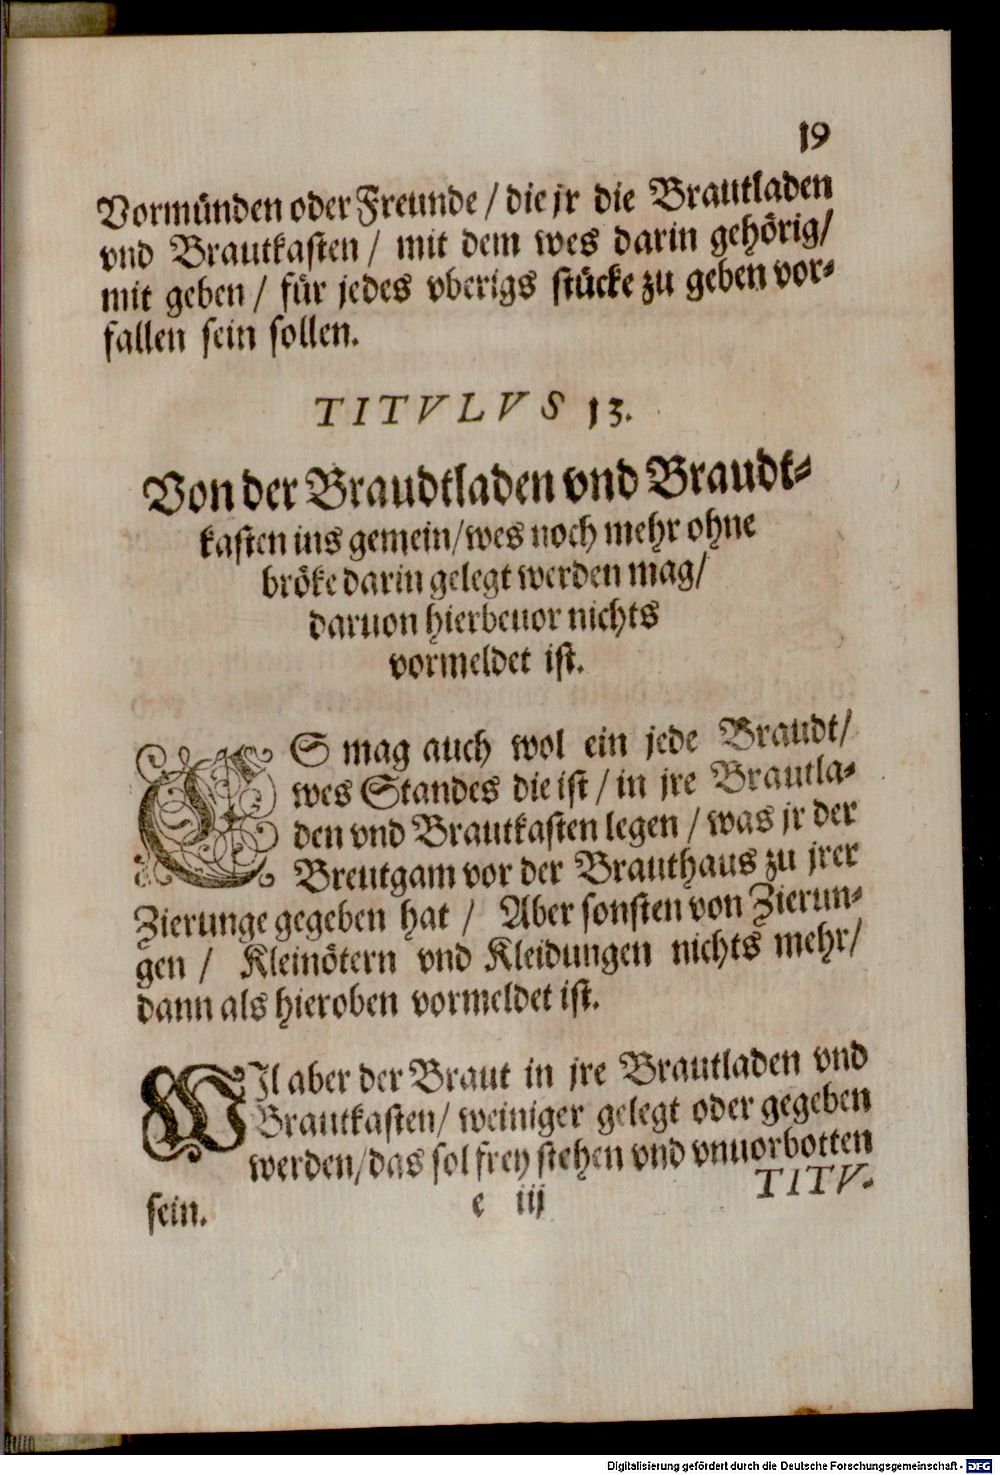 19
Vormünden oder Freunde / die jr die Brautladen
vnd Brautkasten / mit dem wes darin gehörig/
mit geben / für jedes vberigs stücke zu geben vor-
fallen sein sollen.
TITVLVS 13.
Von der Braudtladen vnd Braudt-
kasten ins gemein/wes noch mehr ohne
bröke darin gelegt werden mag/
daruon hierbeuor nichts
vormeldet ist.
ES mag auch wol ein jede Braudt/
wes Standes die ist / in jre Brautla-
den vnd Brautkasten legen / was jr der
Breutgam vor der Brauthaus zu jrer
Zierunge gegeben hat / Aber sonsten von Zierun-
gen / Kleinötern vnd Kleidungen nichts mehr/
dann als hieroben vormeldet ist.
WIl aber der Braut in jre Brautladen vnd
Brautkasten/ weiniger gelegt oder gegeben
werden/das sol frey stehen vnd vnuorbotten
sein.
e iij
TITV-
Digitalisierung gefördert durch die Deutsche Forschungsgemeinschaft - DFG